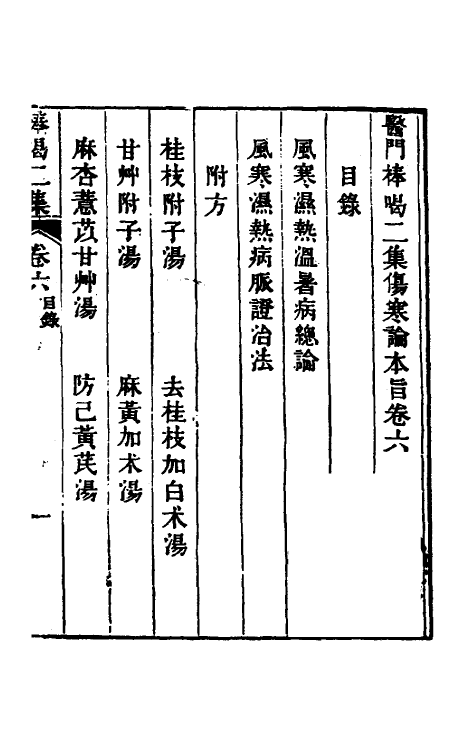 醫門棒喝二集傷寒論本旨卷六
目錄
風寒濕熱溫暑病總論
風寒濕熱病脈證治法
附方
桂枝附子湯　去桂枝加白朮湯
甘艸附子湯　麻黃加朮湯
麻杏薏苡甘艸湯　防己黃芪湯
棒喝二集　卷六　目錄　一